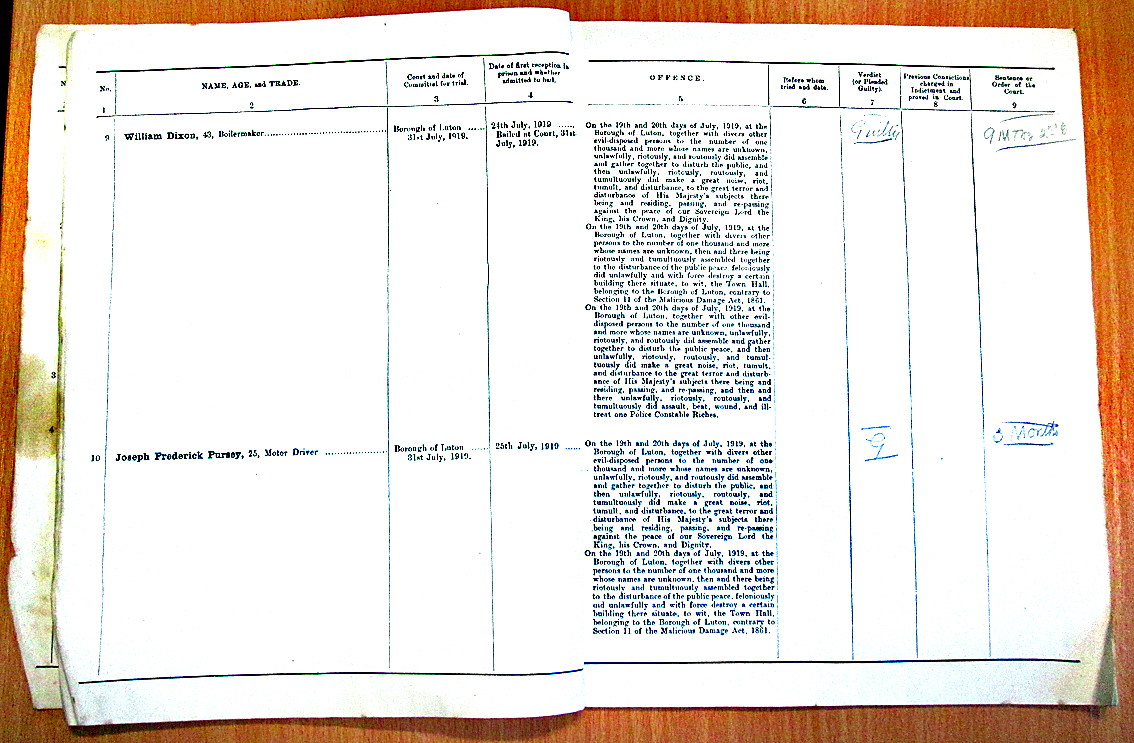 No.
NAME, AGE, and TRADE.
Court and date of
Committal for trial.
Date of first reception in
prison and whether
admitted to bail.
OFFENCE.
Before whom
tried and date.
Verdict
(or Pleaded
Guilty).
Previous Convictions
charged in
Indictment and
proved in Court.
Sentence or
Order of the
Court.
1
2
3
4
5
6
7
8
9
9
William Dixon, 43, Boilermaker
Borough of Luton ......
31st July, 1919.
24th July, 1919 .....
Bailed at Court, 31st
July, 1919.
On the 19th and 20th days of July, 1919, at the
Borough of Luton, together with divers other
evil-disposed persons to the number of one
thousand and more whose names are unknown,
unlawfully, riotously, and routously did assemble
and gather together to disturb the public, and
then unlawfully, riotously, routously, and
tumultuously did make a great noise, riot,
tumult, and disturbance, to the great terror and
disturbance of His Majesty's subjects there
being and residing, passing, and re-passing
against the peace of our Sovereign Lord the
King, his Crown, and Dignity.
On the 19th and 20th days of July, 1919, at the
Borough of Luton, together with divers other
persons to the number of one thousand and more
whose names are unknown, then and there being
riotously and tumultuously assembled together
to the disturbance of the public peace feloniously
did unlawfully and with force destroy a certain
building there situate, to wit, the Town Hall,
belonging to the Borough of Luton, contrary to
Section 11 of the Malicious Damage Act, 1861.
On the 19th and 20th days of July, 1919, at the
Borough of Luton, together with other evil-
disposed persons to the number of one thousand
and more whose names are unknown, unlawfully,
riotously, and routously did assemble and gather
together to disturb the public peace, and then
unlawfully, riotously, routously, and tumul-
tuously did make a great noise, riot, tumult,
and disturbance to the great terror and disturb-
ance of His Majesty's subjects there being and
residing, passing, and re-passing, and then and
there unlawfully, riotously, routously, and
tumultuously did assault, beat, wound, and ill-
treat one Police Constable Riches.
Guilty
9 Mths
10
Joseph Frederick Pursey, 25, Motor Driver
Borough of Luton ......
31st July, 1919.
25th July, 1919 ......
On the 19th and 20th days of July, 1919, at the
Borough of Luton, together with divers other
evil-disposed persons to the number of one
thousand and more whose names are unknown,
unlawfully, riotously, and routously did assemble
and gather together to disturb the public, and
then unlawfully, riotously, routously, and
tumultuously did make a great noise, riot,
tumult, and disturbance, to the great terror and
disturbance of His Majesty's subjects there
being and residing, passing, and re-passing
against the peace of our Sovereign Lord the
King, his Crown, and Dignity.
On the 19th and 20th days of July, 1919, at the
Borough of Luton, together with divers other
persons to the number of one thousand and more
whose names are unknown, then and there being
riotously and tumultuously assembled together
to the disturbance of the public peace, feloniously
did unlawfully and with force destroy a certain
building there situate, to wit, the Town Hall,
belonging to the Borough of Luton, contrary to
Section 11 of the Malicious Damage Act, 1861.
G
3 Months
3
4